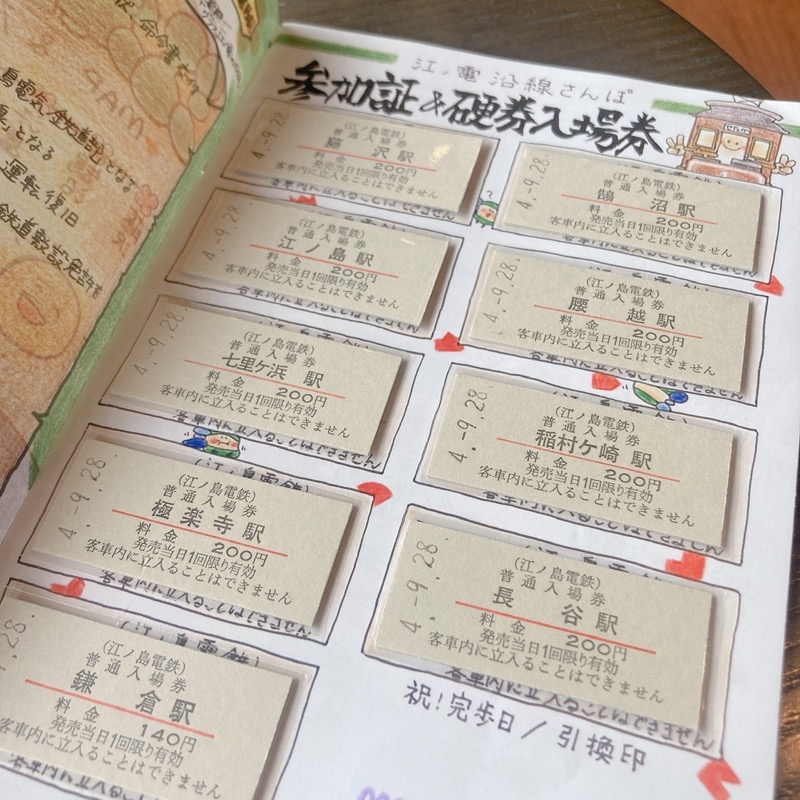 状、命令書交付
島電気鉄道」となる
」となる
運転復旧
鉄道敷設免許を
江ノ電沿線さんぽ
参加証&硬券入場券
4.-9.28
(江ノ島電鉄)
普通入場券
藤沢駅
料金 200円
発売当日1回限り有効
客車内に立入ることはできません
4.-9.28.
(江ノ島電鉄)
普通入場券
鵠沼駅
料金 200円
発売当日1回限り有効
客車内に立入ることはできません
4.-9.28.
(江ノ島電鉄)
普通入場券
江ノ島駅
料金 200円
発売当日1回限り有効
客車内に立入ることはできません
4.-9.28.
(江ノ島電鉄)
普通入場券
腰越駅
料金 200円
発売当日1回限り有効
客車内に立入ることはできません
4.-9.28.
(江ノ島電鉄)
普通入場券
七里ケ浜駅
料金 200円
発売当日1回限り有効
客車内に立入ることはできません
4.-9.28.
(江ノ島電鉄)
普通入場券
稲村ケ崎駅
料金 200円
発売当日1回限り有効
客車内に立入ることはできません
4.-9.28
(江ノ島電鉄)
普通入場券
極楽寺駅
料金 200円
発売当日1回限り有効
客車内に立入ることはできません
4.-9.28.
(江ノ島電鉄)
普通入場券
長谷駅
料金 200円
発売当日1回限り有効
客車内に立入ることはできません
.28.
(江ノ島電鉄)
普通入場券
鎌倉駅
料金 140円
発売当日1回限り有効
客車内に立入ることはできません
祝!完歩日/引換印